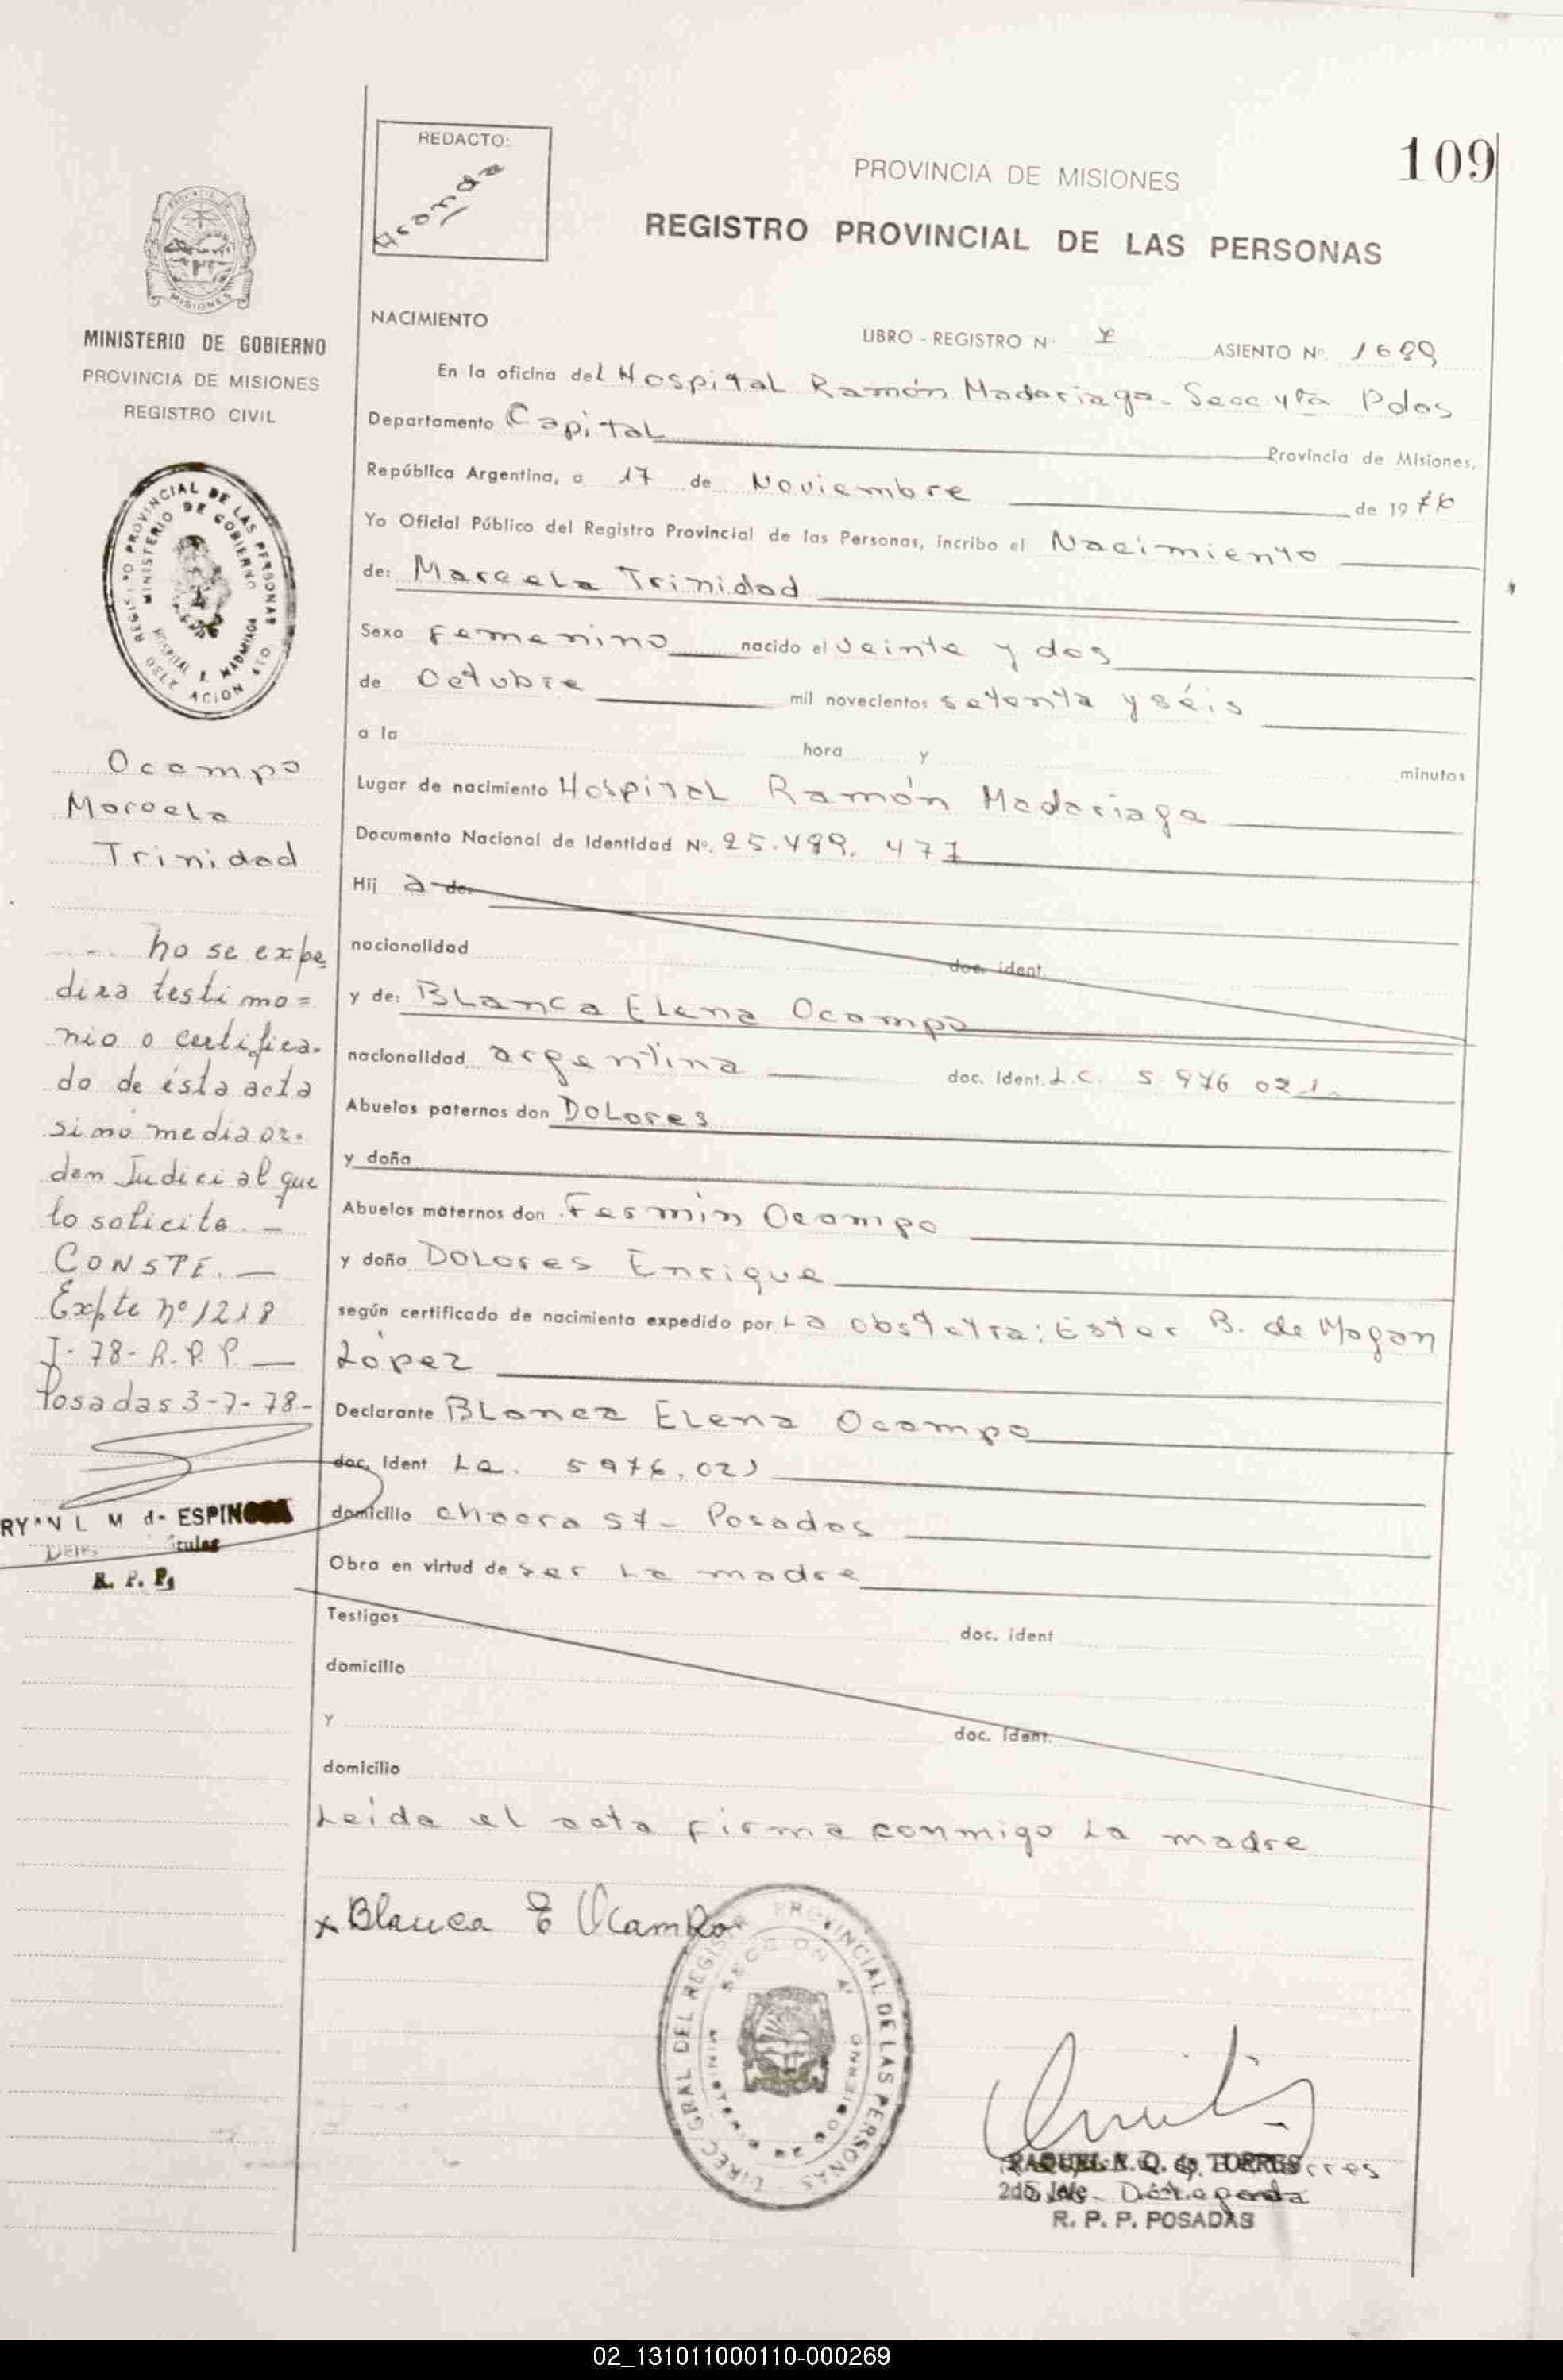 REDACTO:
109
PROVINCIA DE MISIONES
REGISTRO PROVINCIAL DE LAS PERSONAS
MISIONES
MINISTERIO DE GOBIERNO
PROVINCIA DE MISIONES
REGISTRO CIVIL
REGISTRO PROVINCIAL DE LAS PERSONAS
MINISTERIO DE GOBIERNO
HOSPITAL R. MADARIAGA
Ocampo
Marcela
Trinidad
no se expe
dira testimo=
nio o certifica-
do de ésta acta
sino media or-
den Judicial que
lo solicite.-
CONSTE.-
Expte nº 1218
I-78-R.P.P.-
Posadas 3-7-78-
R. P. P.
NACIMIENTO
LIBRO - REGISTRO Nº ASIENTO Nº. 1699
En la oficina del Hospital Ramón Madariaga- Secc 4ta Pdas
Departamento Capital Provincia de Misiones,
República Argentina, a 17 de Noviembre de 1976
Yo Oficial Público del Registro Provincial de las Personas, incribo el Nacimiento
de: Marcela Trinidad
Sexo Femenino nacido el veinte y dos
de Octubre mil novecientos setenta y séis
a la hora y minutos
Lugar de nacimiento Hospital Ramón Madariaga
Documento Nacional de Identidad Nº. 25.499. 477
Hij a de:
nacionalidad doc. ident.
y de: Blanca Elena Ocampo
nacionalidad argentina doc. Ident. L.C. 5.976 021.
Abuelos paternos don Dolores
y doña
Abuelos maternos don Fermin Ocampo
y doña Dolores Enrique
según certificado de nacimiento expedido por La obstetra: Ester B. de Mogan
López
Declarante Blanca Elena Ocampo
doc. Ident Lc. 5976.021
domicilio chacra 57- Posadas
Obra en virtud de ser La madre
Testigos doc. ident
domicilio
y doc. ident.
domicilio
Leida el acta firma conmigo La madre
x Blanca E Ocampo
DIREC GRAL DEL REGISTR PROVINCIAL DE LAS PERSONAS
SECCION 4ª
RAQUEL N. Q. de TORRES
R. P. P. POSADAS
02_131011000110-000269